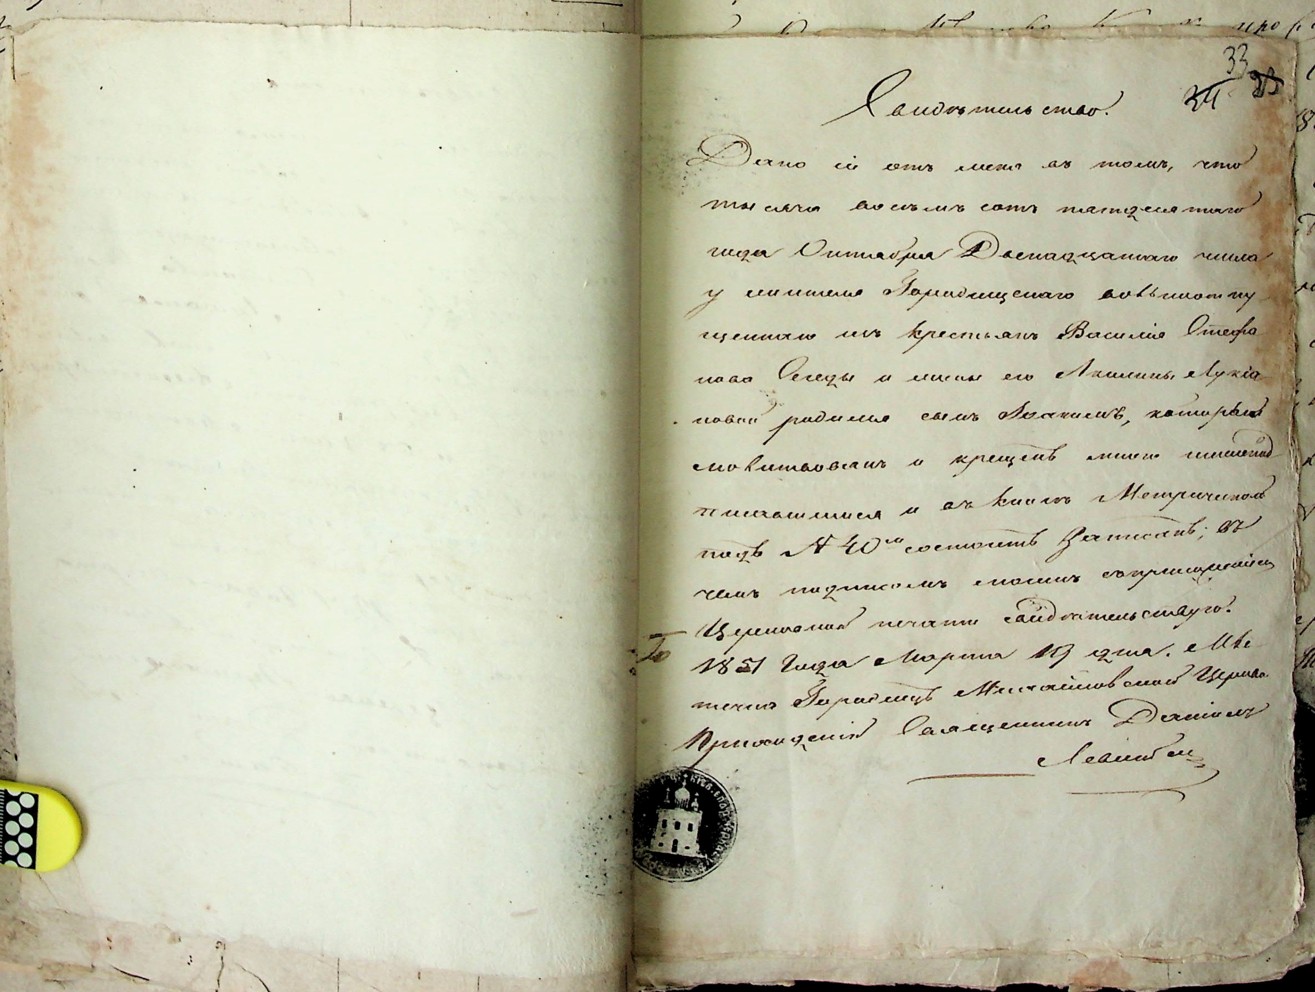 33
24 23
Свидѣтельство.
Дано сіе отъ мена въ томъ, что
тысяча восемъ сотъ пятдесятаго
года Октабря Двенадцатаго числа
у жителя Городищскаго
изъ крестьянъ Василія Стефа
нова и жены его Акилины Лукія
новой родился сынъ Іоакимъ, который
молитвованъ и крещенъ мною нижепод
писавшимся и въ книгѣ Метрической
подъ № 40мъ состоитъ записанъ; въ
чемъ подписомъ моимъ съ приложеніемъ
Церковной печати свидѣтельствую.
1851 Года Марта 19 дня. Мѣс
течка Городищъ Михайловской Церкви
Приходскій Священникъ Даніилъ